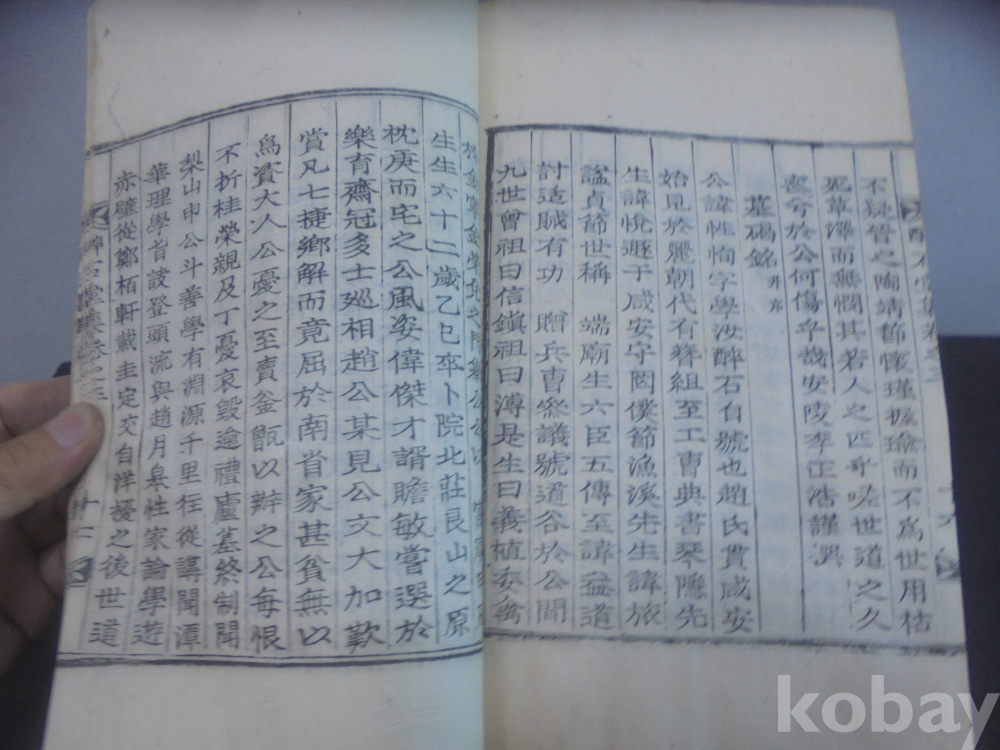 不疑晉之陶靖節懷瑾握瑜而不爲世用枯
死草澤而無憫其若人之匹乎嗟世道之久
喪兮於公何傷乎哉安陵李江浩謹譔
墓碣銘 并序
公諱性恂字學汝醉石自號也趙氏貫咸安
始見於麗朝代有簪組至工曹典書琴隱先
生諱悅遯于咸安守罔僕節漁溪先生諱旅
諡貞節世稱 端廟生六臣五傳至諱益道
討适賊有功 贈兵曹參議號道谷於公間
九世曾祖曰信鎭祖曰溥是生曰義植委禽
生生六十二歲乙巳卒卜院北莊艮山之原
枕庚而宅之公風姿偉傑才諝贍敏嘗選於
樂育齋冠多士廵相趙公某見公文大加歎
賞凡七捷鄉解而竟屈於南省家甚貧無以
爲資大人公憂之至賣釜甑以辦之公每恨
不折桂榮親及丁憂哀毀逾禮廬墓終制聞
梨山申公斗善學有淵源千里往從講聞潭
華理學旨訣登頭流與趙月皐性家論學遊
赤壁從鄭栢軒載圭定交自洋擾之後世道
kobay